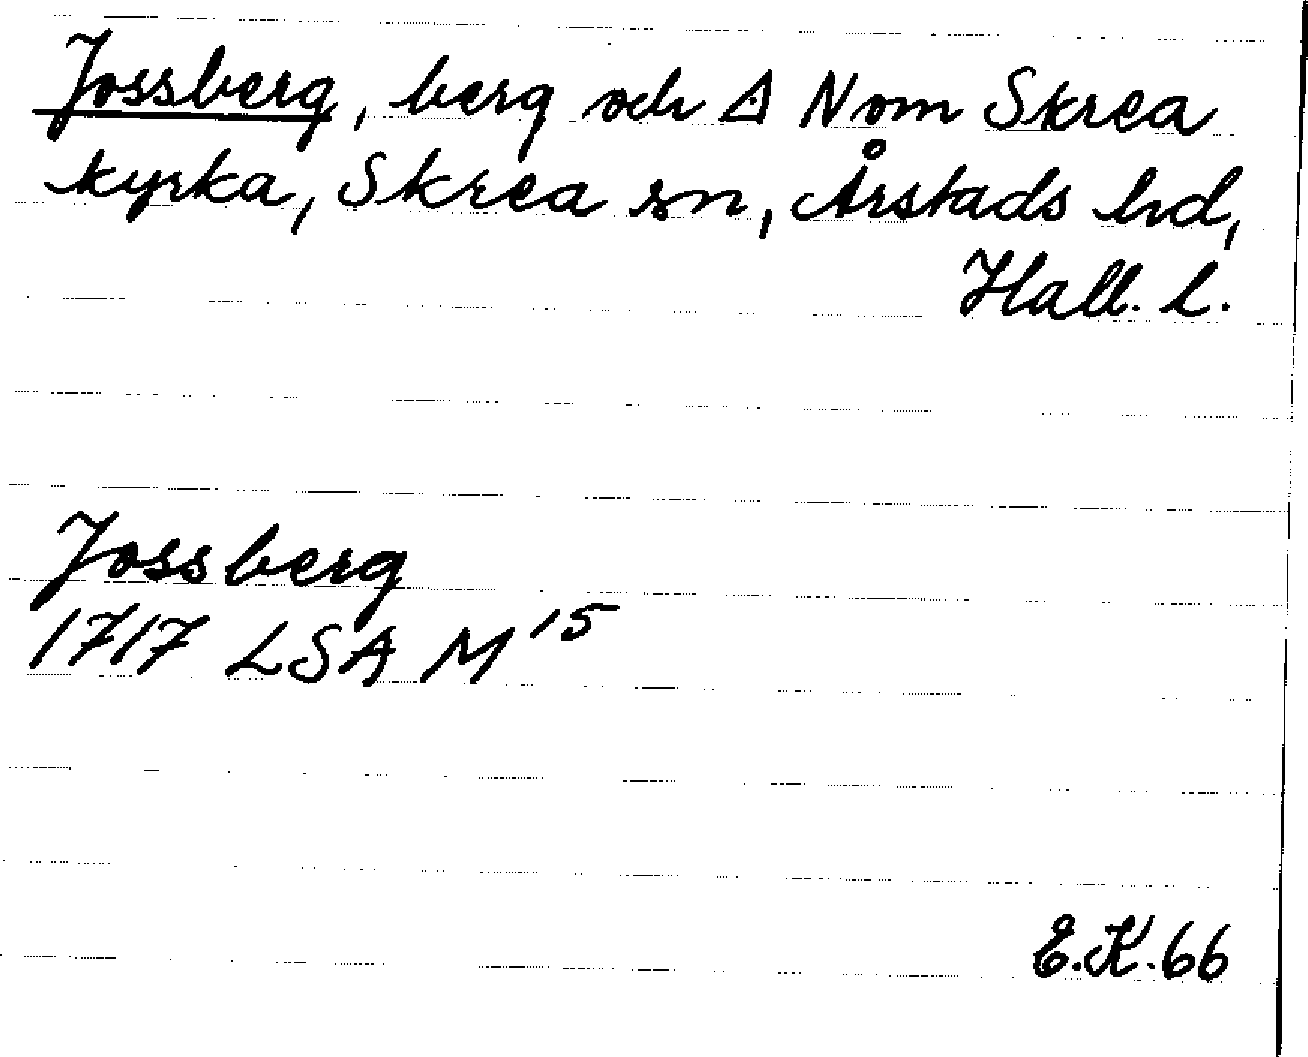 Jossberg, berg och △ N om Skrea
kyrka, Skrea sn, Årstads hd,
Hall. l.
Jossberg
1717 LSA M 15
E.K. 66